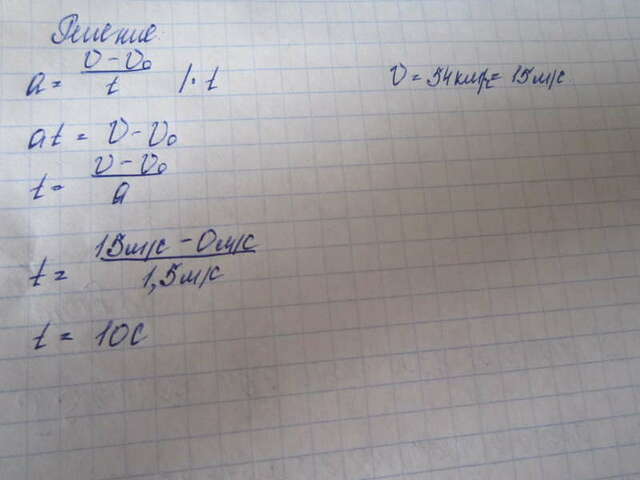 Решение
a = (v - v₀)/t  | · t
v = 54км/ч = 15м/с
at = v - v₀
t = (v - v₀)/a
t = (15м/с - 0м/с)/1,5м/с
t = 10с